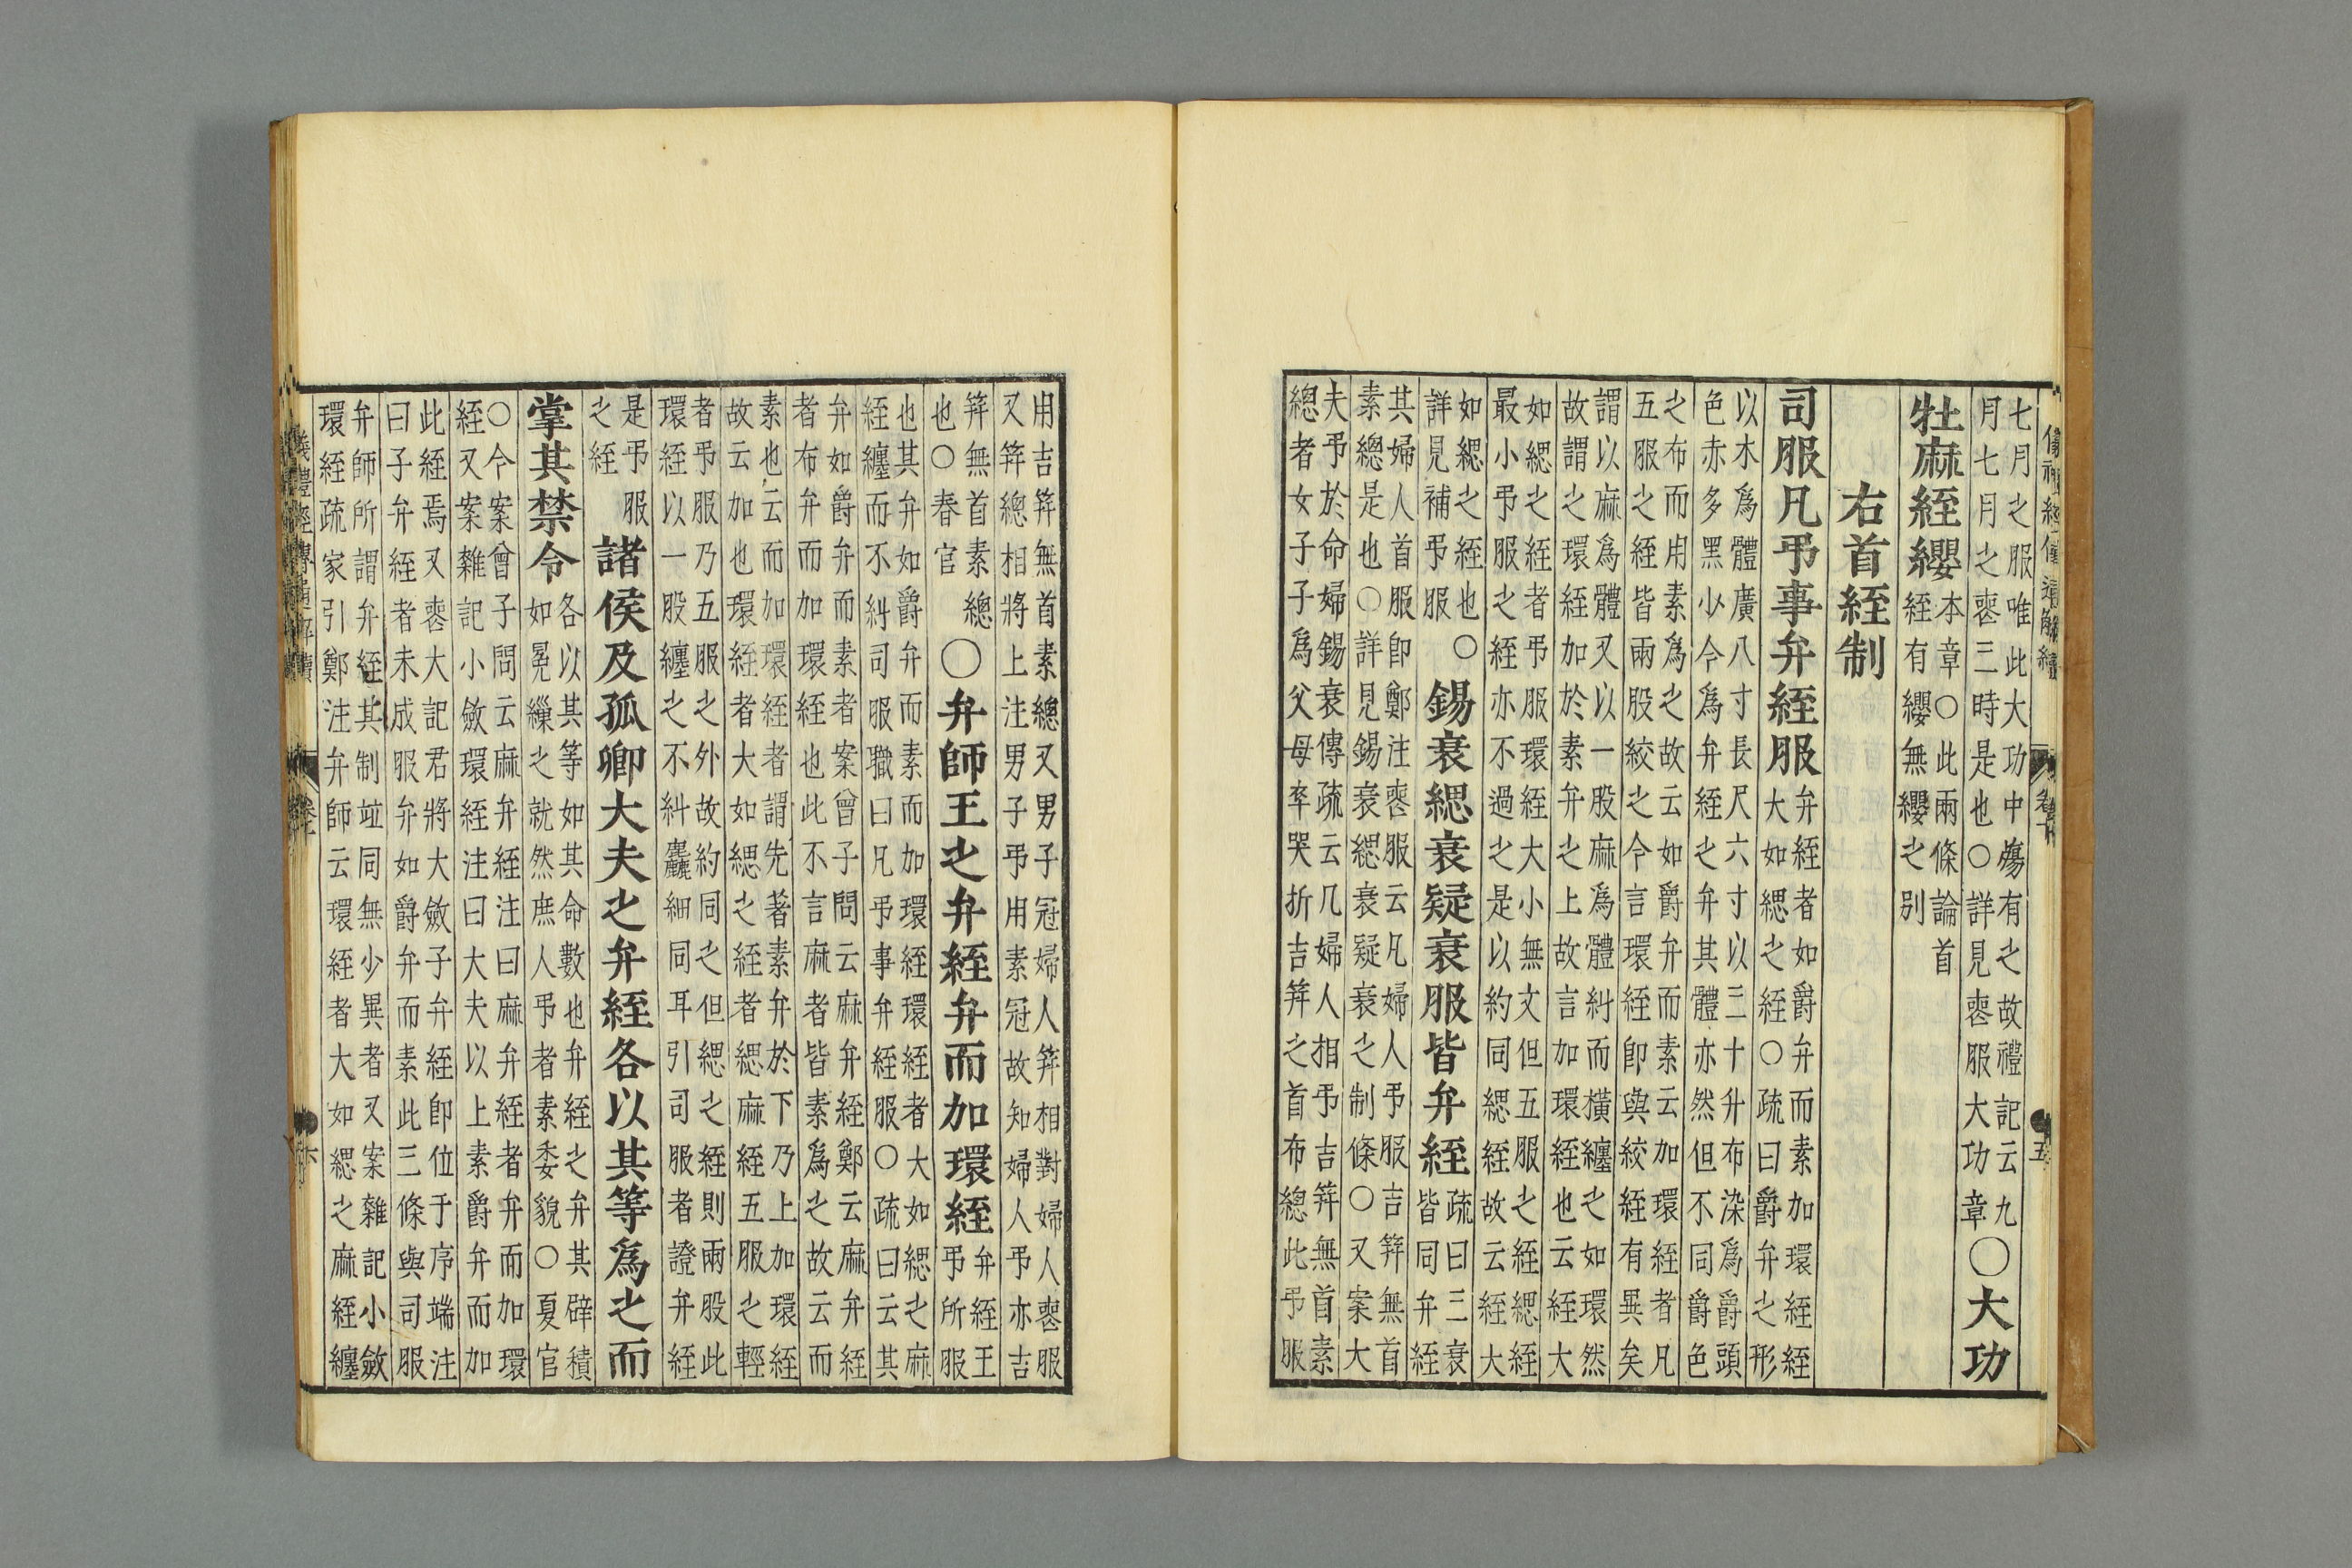 儀禮經傳通解續
五
七月之服唯此大功中殤有之故禮記云九
月七月之喪三時是也○詳見喪服大功章
○大功
牡麻絰纓
本章○此兩條論首
絰有纓無纓之別
右首絰制
司服凡弔事弁絰服
弁絰者如爵弁而素加環絰絰
大如緦之絰○疏曰爵弁之形
以木爲體廣八寸長尺六寸以三十升布染爲爵頭
色赤多黑少今爲弁絰之弁其體亦然但不同爵色
之布而用素爲之故云如爵弁而素云加環絰者凡
五服之絰皆兩股絞之今言環絰卽與絞絰有異矣
謂以麻爲體又以一股麻爲體糾而橫纏之如環然
故謂之環絰加於素弁之上故言加環絰也云絰大
如緦之絰者弔服環絰大小無文但五服之絰緦絰
最小弔服之絰亦不過之是以約同緦絰故云絰大
如緦之絰也○
詳見補弔服
錫衰緦衰疑衰服皆弁絰
疏曰三衰
皆同弁絰
其婦人首服卽鄭注喪服云凡婦人弔服吉笄無首
素總是也○詳見錫衰緦衰疑衰之制條○又案大
夫弔於命婦錫衰傳疏云凡婦人相弔吉笄無首素
總者女子子爲父母卒哭折吉笄之首布總此弔服
用吉笄無首素總又男子冠婦人笄相對婦人喪服
又笄總相將上注男子弔用素冠故知婦人弔亦吉
笄無首素總
也○春官
○弁師王之弁絰弁而加環絰
弁絰王
弔所服
也其弁如爵弁而素而加環絰環絰者大如緦之麻
絰纏而不糾司服職曰凡弔事弁絰服○疏曰云其
弁如爵弁而素者案曾子問云麻弁絰鄭云麻弁絰
者布弁而加環絰也此不言麻者皆素爲之故云而
素也云而加環絰者謂先著素弁於下乃上加環絰
故云加也環絰者大如緦之絰者緦麻絰五服之輕
者弔服乃五服之外故約同之但緦之絰則兩股此
環絰以一股纏之不糾麤細同耳引司服者證弁絰
是弔服
之絰
諸侯及孤卿大夫之弁絰各以其等爲之而
掌其禁令
各以其等如其命數也弁絰之弁其辟積
如冕繅之就然庶人弔者素委貌○夏官
○今案曾子問云麻弁絰注曰麻弁絰者弁而加環
絰又案雜記小斂環絰注曰大夫以上素爵弁而加
此絰焉又喪大記君將大斂子弁絰卽位于序端注
曰子弁絰者未成服弁如爵弁而素此三條與司服
弁師所謂弁絰其制並同無少異者又案雜記小斂
環絰疏家引鄭注弁師云環絰者大如緦之麻絰纏
儀禮經傳通解續
六